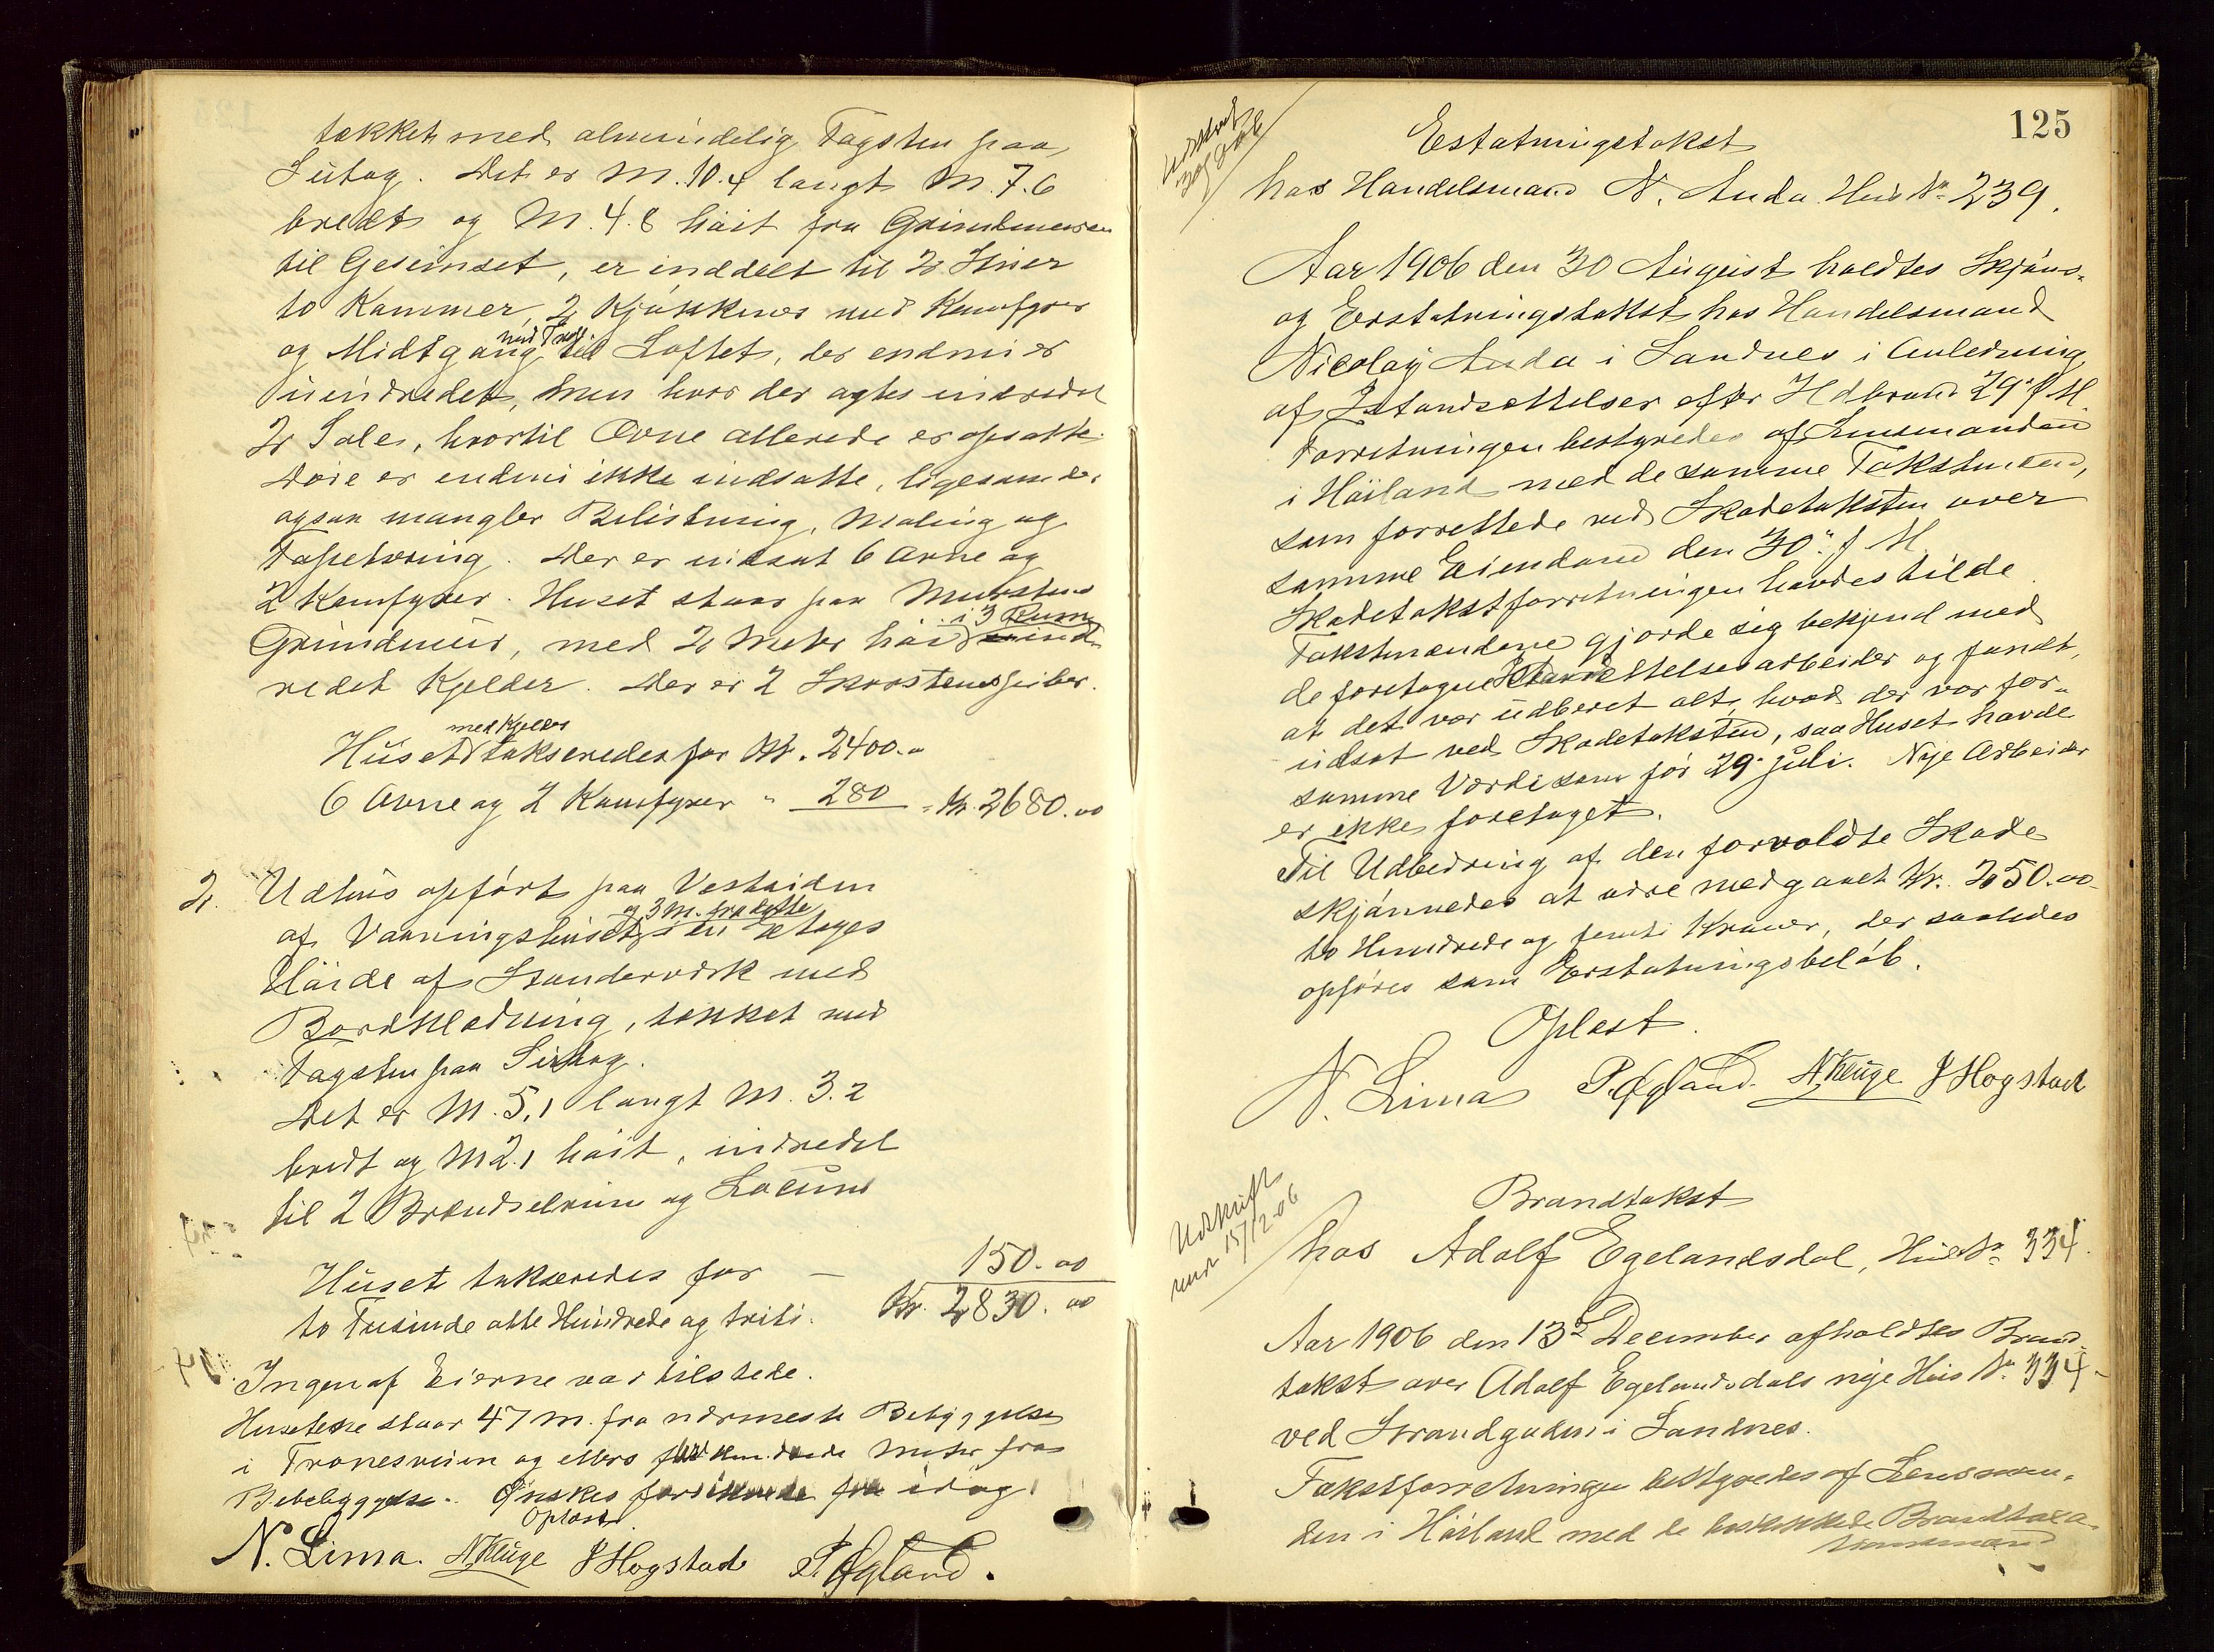 tækket med almindelig Tagsten paa
Sutag. Det er M. 10.4 langt M. 7.6
bredt og M. 4.8 høit fra Grundmuren
til Gesimset, er inddelt til 2 Stuer
to Kammer, 2 Kjøkkener med Komfyrer
og Midtgang med Trap til Loftet, der endnu er
uindredet, men hvor der agtes indredet
2 Sale, hvortil Ovne allerede er opsatte.
Døre er endnu ikke indsatte, ligesom der
ogsaa mangler Belistning, Maling og
Tapetsering. Der er indsat 6 Ovne og
2 Komfyrer. Huset staar paa Murstens
Grundmur, med 2 Meter høi i 3 Rum ind
redet Kjelder. Der er 2 Skorstenspiber.
Huset med Kjelder takseredes for Kr. 2400.00
6 Ovne og 2 Komfyrer " 280 = Kr. 2680.00
2. Udhus opført paa Vestsiden
af Vaaningshuset og 3 M. fra dette i en Etages
Høide af Standerværk med
Bordklædning, tækket med
Tagsten paa Sutag.
Det er M. 5,1 langt M. 3.2
bredt og M 2.1 høit, indredet
til 2 Brændselrum og Locum
Huset takseredes for — 150.00
to Tusinde otte Hundrede og triti. Kr. 2830.00
Ingen af Eierne var tilstede.
Husene staar 47 m. fra nærmeste Bebyggelse
i Tronesveien og ellers Meter fra
Bebebyggelse. Ønskes forsikrede fra idag
Oplæst
N. Lima. N Kluge J Hogstad P. Øgland.
125
Udskrevet
30/8 06
Erstatningstakst
hos Handelsmand N. Auda Hus No 239.
Aar 1906 den 30 August holdtes Skjøns-
og Erstatningstakst hos Handelsmand
Nicolay Auda i Sandnes i Anledning
af Istandsættelser efter Ildbrand 29 f M.
Forretningen bestyredes af Lensmanden
i Høiland med de samme Takstmænd,
som forrettede ved Skadetaksten over
samme Eiendom den 30. f M.
Skadetakstforretningen havdes tilde
Takstmændene gjorde sig bekjend med
de foretagne Istandsættelsesarbeider og fandt,
at det var udberet alt, hvad der var for-
udsat ved Skadetaksten, saa Huset havde
samme Værdi som før 29 juli. Nye Arbeider
er ikke foretaget.
Til Udbedring af den forvoldte Skade
skjønnedes at være medgaaet Kr. 250.00
to Hundrede og femti Kroner, der saaledes
opføres som Erstatningsbeløb.
Oplæst.
N. Lima P. Øgland. N Kluge J Hogstad
Udskrift
send 15/12-06
Brandtakst
hos Adolf Egelandsdal, Hus No 334.
Aar 1906 den 13de December afholdtes Brand-
takst over Adolf Egelandsdals nye Hus No. 334
ved Strandgaden i Sandnes.
Takstforretningen bestyredes af Lensman-
den i Høiland med de beskikkede Brandtaxa-
tionsmænd